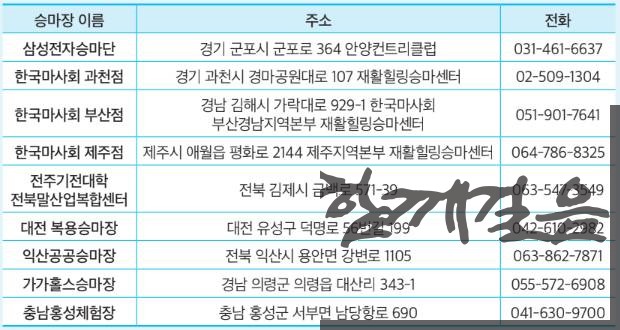 승마장 이름 주소 전화
삼성전자승마단 경기 군포시 군포로 364 안양컨트리클럽 031-461-6637
한국마사회 과천점 경기 과천시 경마공원대로 107 재활힐링승마센터 02-509-1304
한국마사회 부산점 경남 김해시 가락대로 929-1 한국마사회 051-901-7641
부산경남지역본부 재활힐링승마센터
한국마사회 제주점 제주시 애월읍 평화로 2144 제주지역본부 재활힐링승마센터 064-786-8325
전주기전대학 전북 김제시 금백로 571-39 063-547-3549
전북말산업복합센터
대전 복용승마장 대전 유성구 덕명로 56번길 199 042-610-2982
익산공공승마장 전북 익산시 용안면 강변로 1105 063-862-7871
가가홀스승마장 경남 의령군 의령읍 대산리 343-1 055-572-6908
충남홍성체험장 충남 홍성군 서부면 남당항로 690 041-630-9700
함께걸음